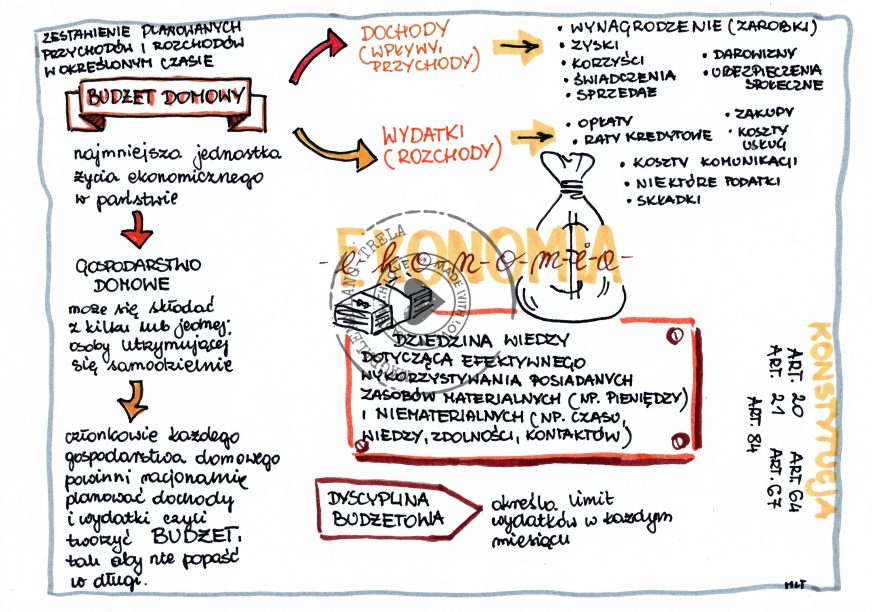 ZESTAWIENIE PLANOWANYCH
PRZYCHODÓW I ROZCHODÓW
W OKREŚLONYM CZASIE
BUDŻET DOMOWY
najmniejsza jednostka
życia ekonomicznego
w państwie
GOSPODARSTWO
DOMOWE
może się składać
z kilku lub jednej
osoby utrzymującej
się samodzielnie
członkowie każdego
gospodarstwa domowego
powinni racjonalnie
planować dochody
i wydatki czyli
tworzyć BUDŻET,
tak aby nie popaść
w długi.
DOCHODY
(WPŁYWY,
PRZYCHODY)
• WYNAGRODZENIE (ZAROBKI)
• ZYSKI
• KORZYŚCI
• ŚWIADCZENIA
• SPRZEDAŻ
• DAROWIZNY
• UBEZPIECZENIA
SPOŁECZNE
WYDATKI
(ROZCHODY)
• OPŁATY
• RATY KREDYTOWE
• ZAKUPY
• KOSZTY
USŁUG
• KOSZTY KOMUNIKACJI
• NIEKTÓRE PODATKI
• SKŁADKI
EKONOMIA
-e-k-o-n-o-m-i-a-
$
MADE WITH LOVE
DZIEDZINA WIEDZY
DOTYCZĄCA EFEKTYWNEGO
WYKORZYSTYWANIA POSIADANYCH
ZASOBÓW MATERIALNYCH (NP. PIENIĘDZY)
I NIEMATERIALNYCH (NP. CZASU,
WIEDZY, ZDOLNOŚCI, KONTAKTÓW)
DYSCYPLINA
BUDŻETOWA
określa limit
wydatków w każdym
miesiącu
KONSTYTUCJA
ART. 20 ART 64
ART. 21 ART. 67
ART. 84